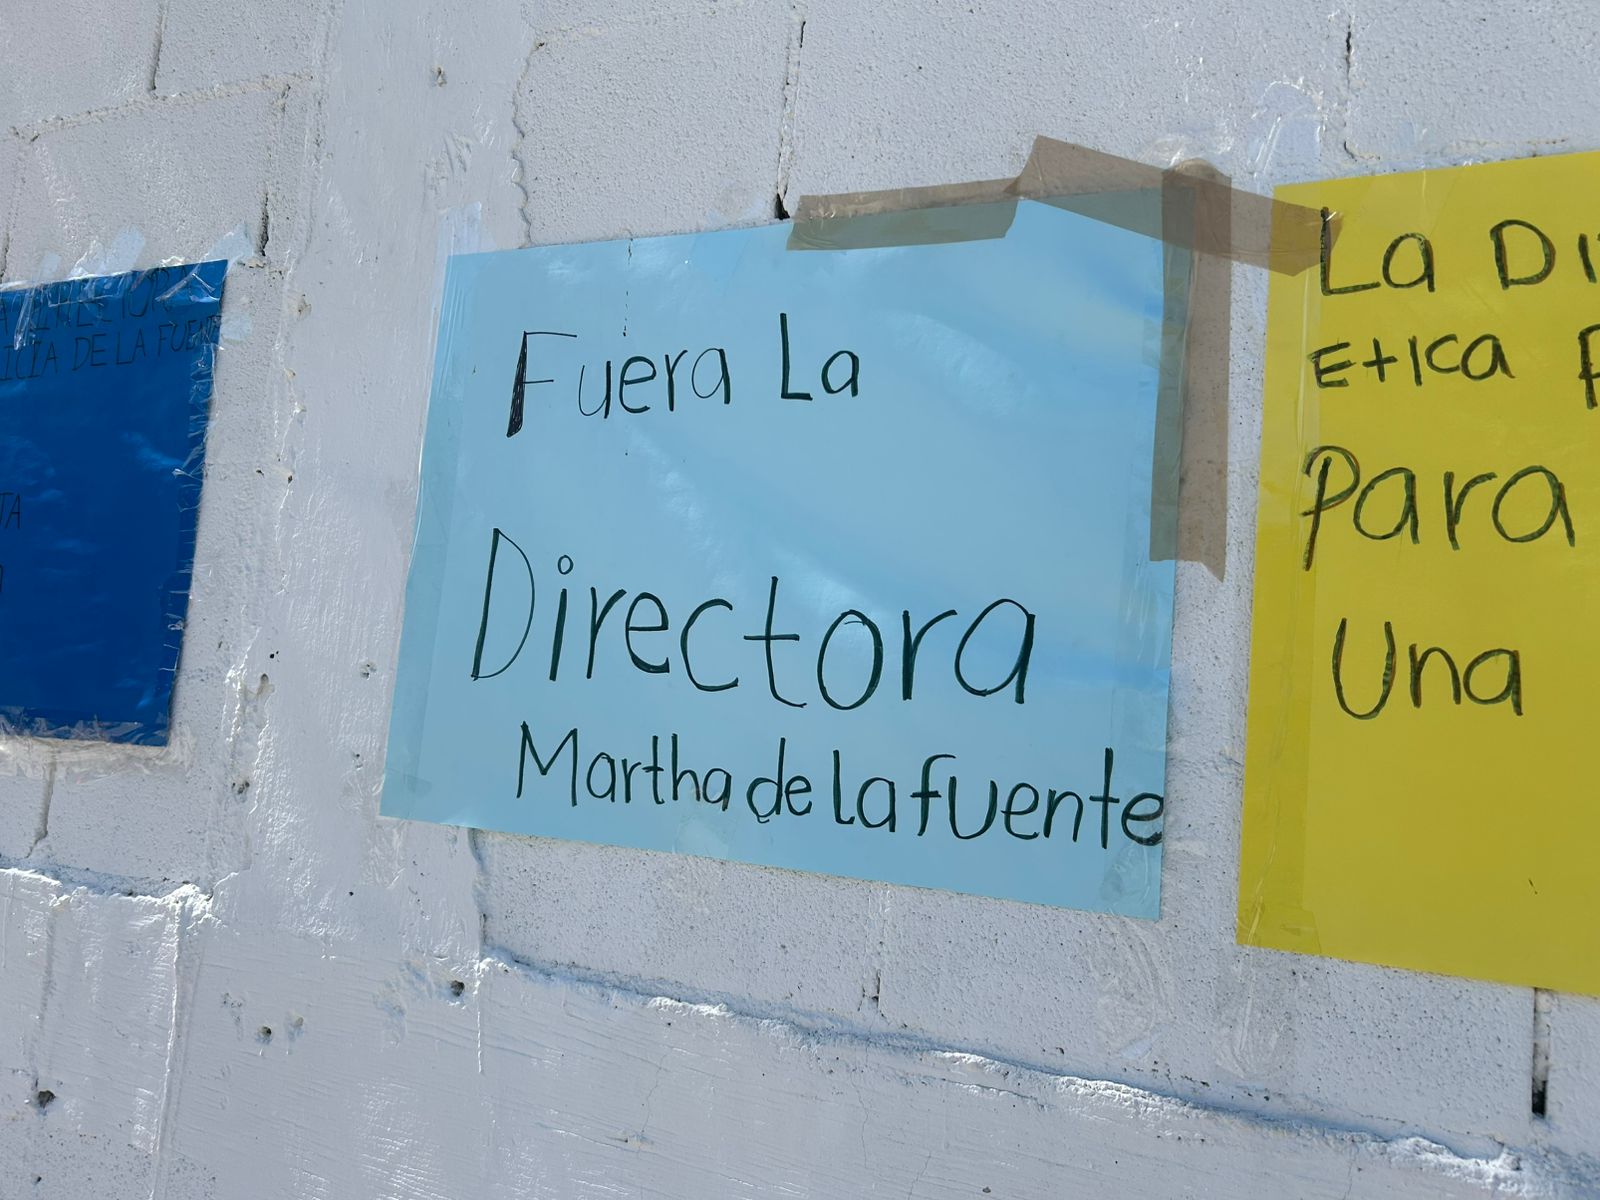 DE LA FUENTE
Fuera La
Directora
Martha de la fuente
La
Etica
Para
Una